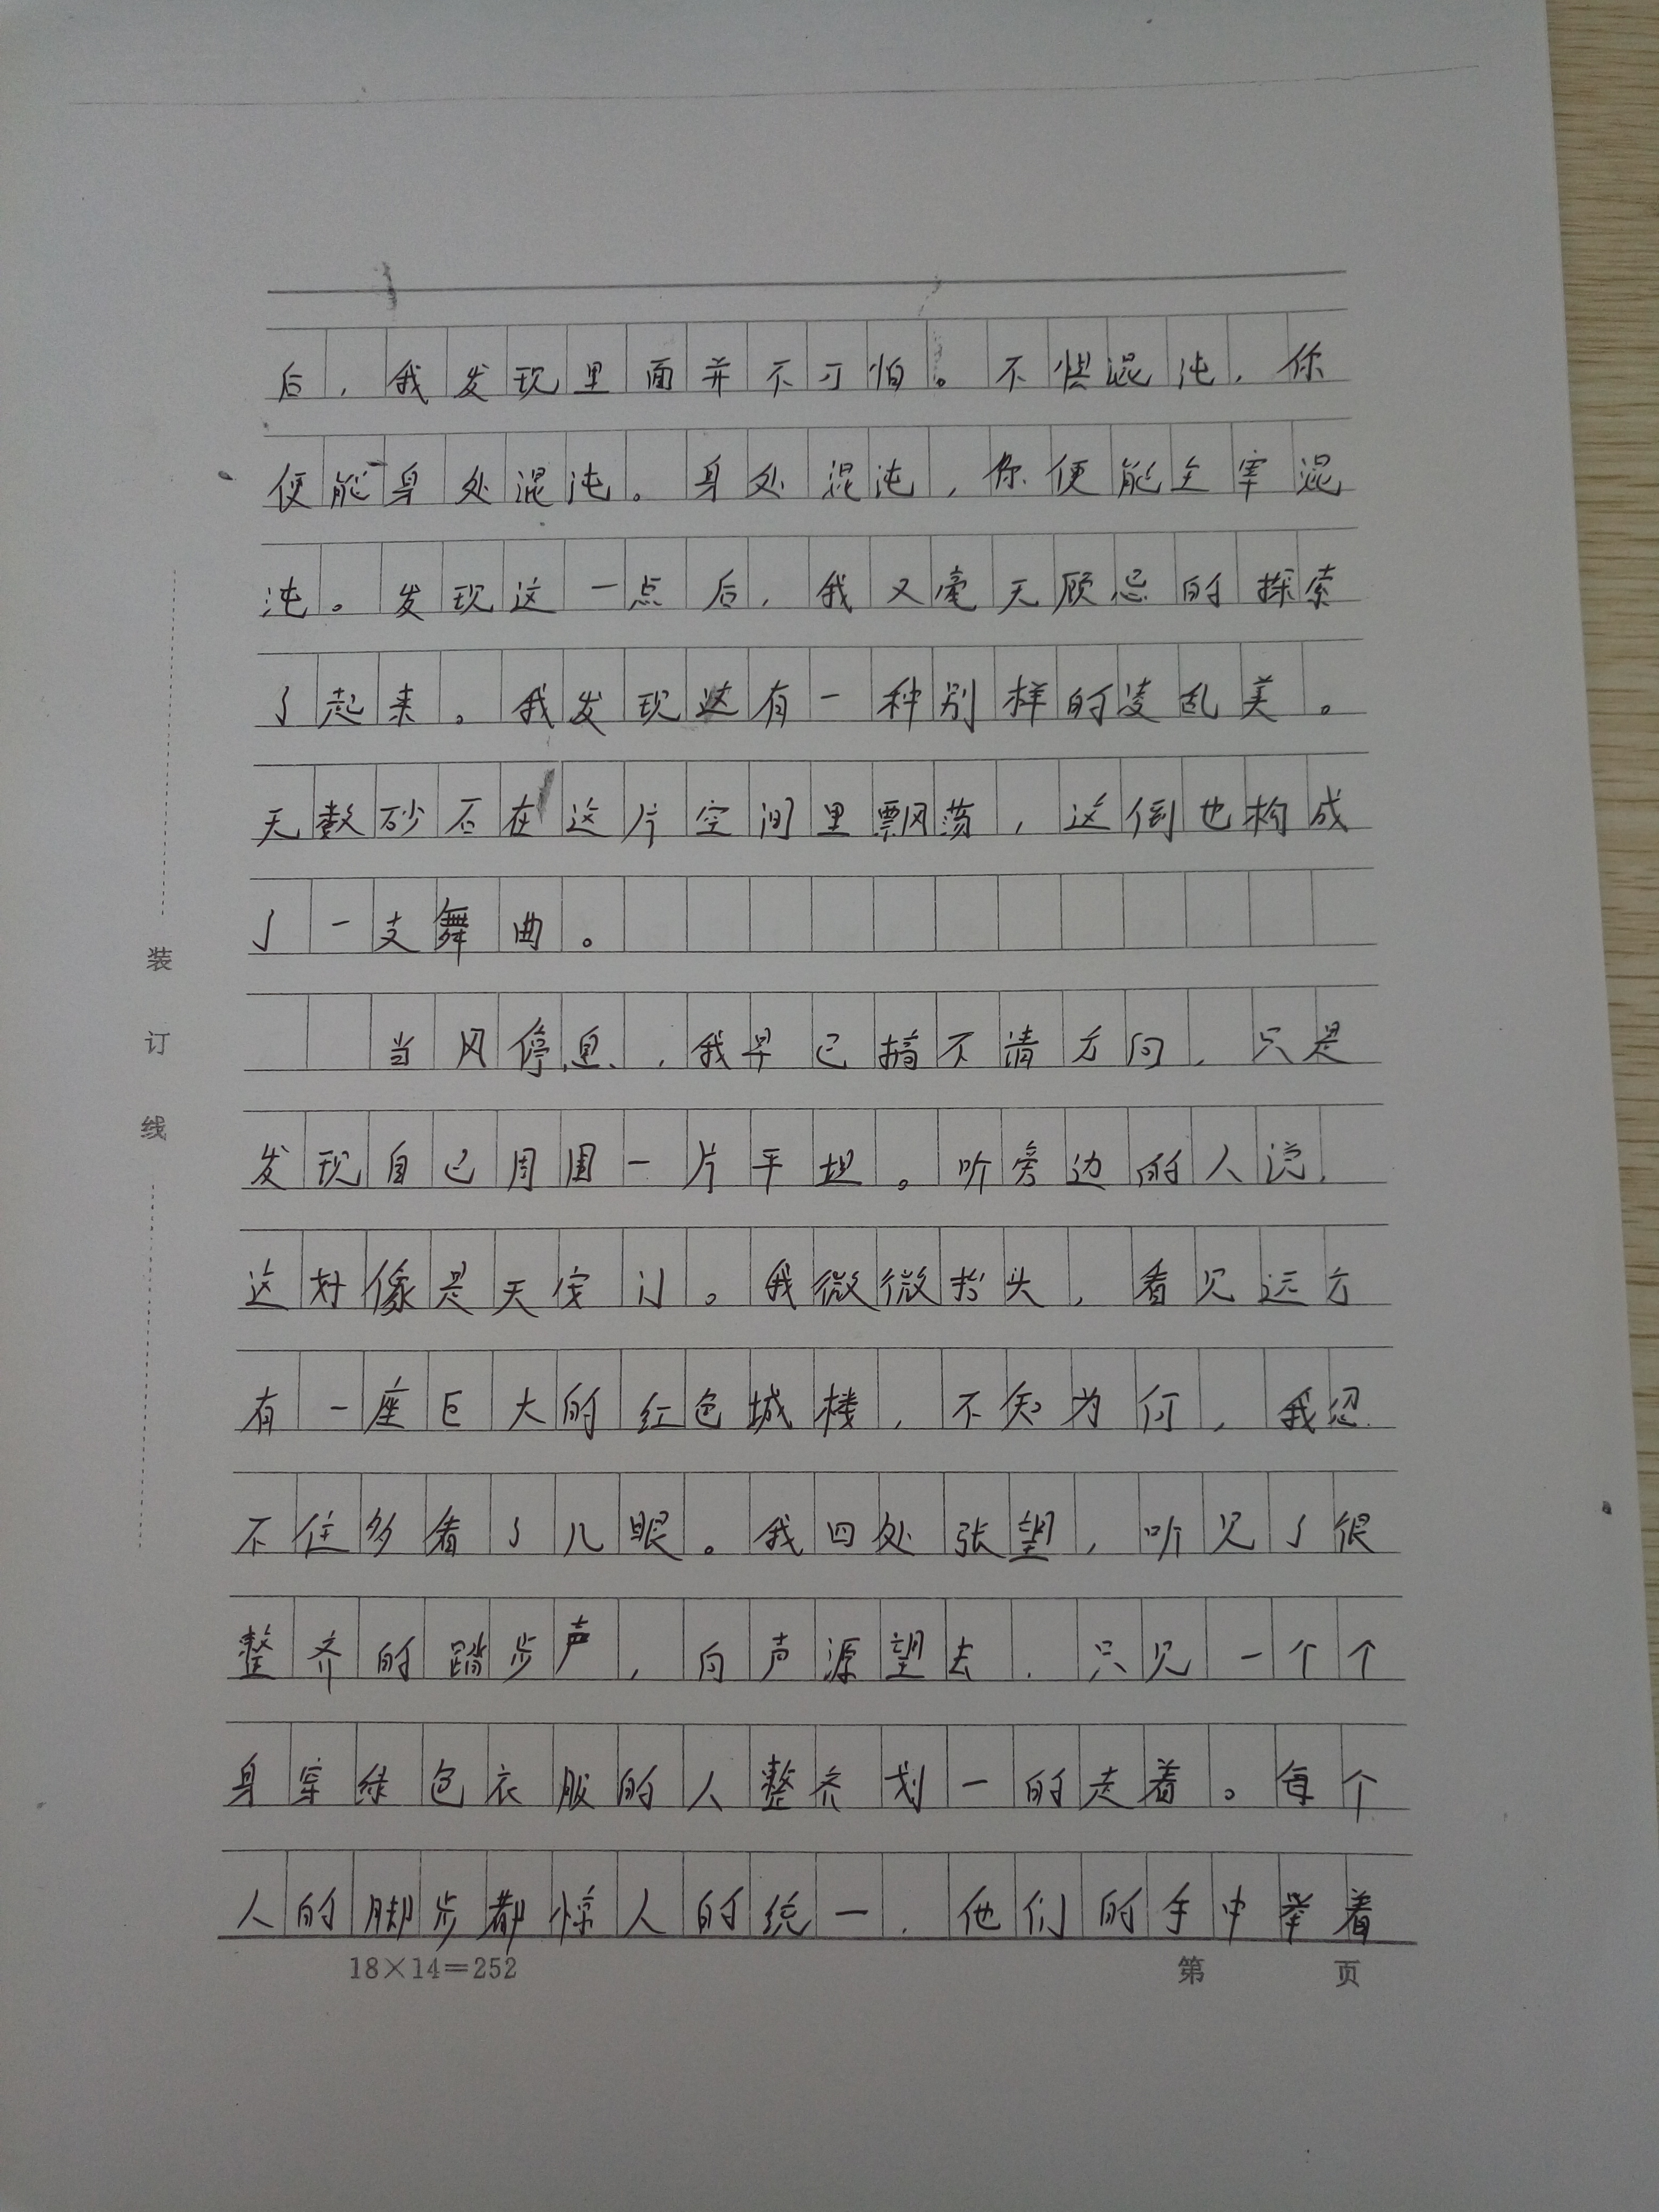 后，我发现里面并不可怕。不惧混沌，你
便能身处混沌。身处混沌，你便能主宰混
沌。发现这一点后，我又毫无顾忌的探索
了起来。我发现这有一种别样的凌乱美。
无数砂石在这片空间里飘荡，这倒也构成
了一支舞曲。
当风停息，我早已搞不清方向，只是
发现自己周围一片平坦。听旁边的人说，
这好像是天安门。我微微抬头，看见远方
有一座巨大的红色城楼，不知为何，我忍
不住多看了几眼。我四处张望，听见了很
整齐的踏步声，向声源望去，只见一个个
身穿绿色衣服的人整齐划一的走着。每个
人的脚步都惊人的统一，他们的手中举着
装订线
18×14=252 第 页